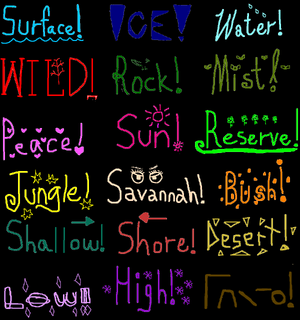 Surface! ICE! Water!
WILD! Rock! Mist!
Peace! Sun! Reserve!
Jungle! Savannah! Bush!
Shallow! Shore! Desert!
Low! High!